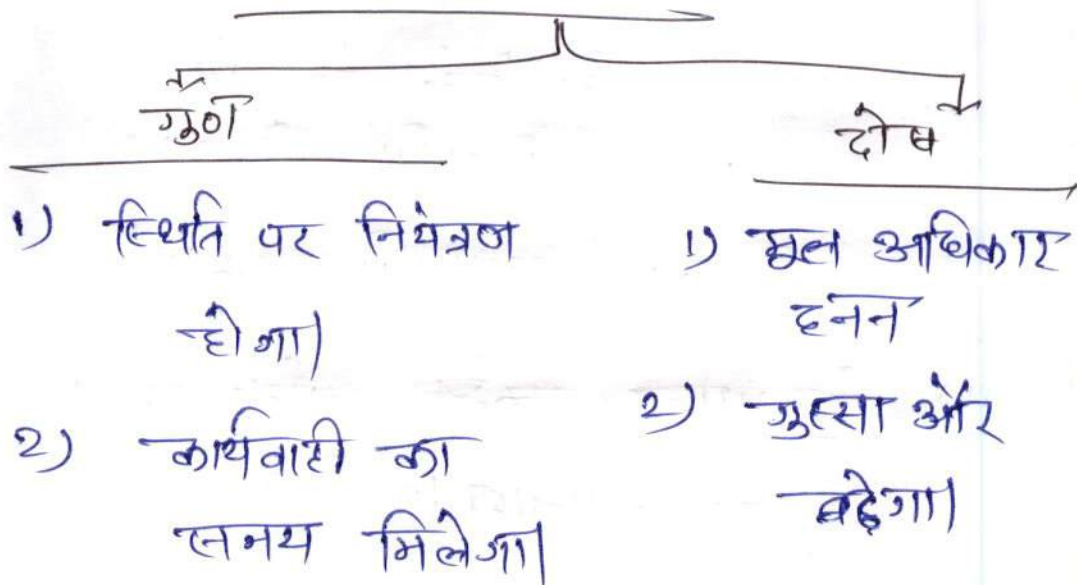 गुण
1) स्थिति पर नियंत्रण
होगा।
2) कार्यवाही का
समय मिलेगा।
दोष
1) मूल अधिकार
हनन
2) गुस्सा और
बढ़ेगा।